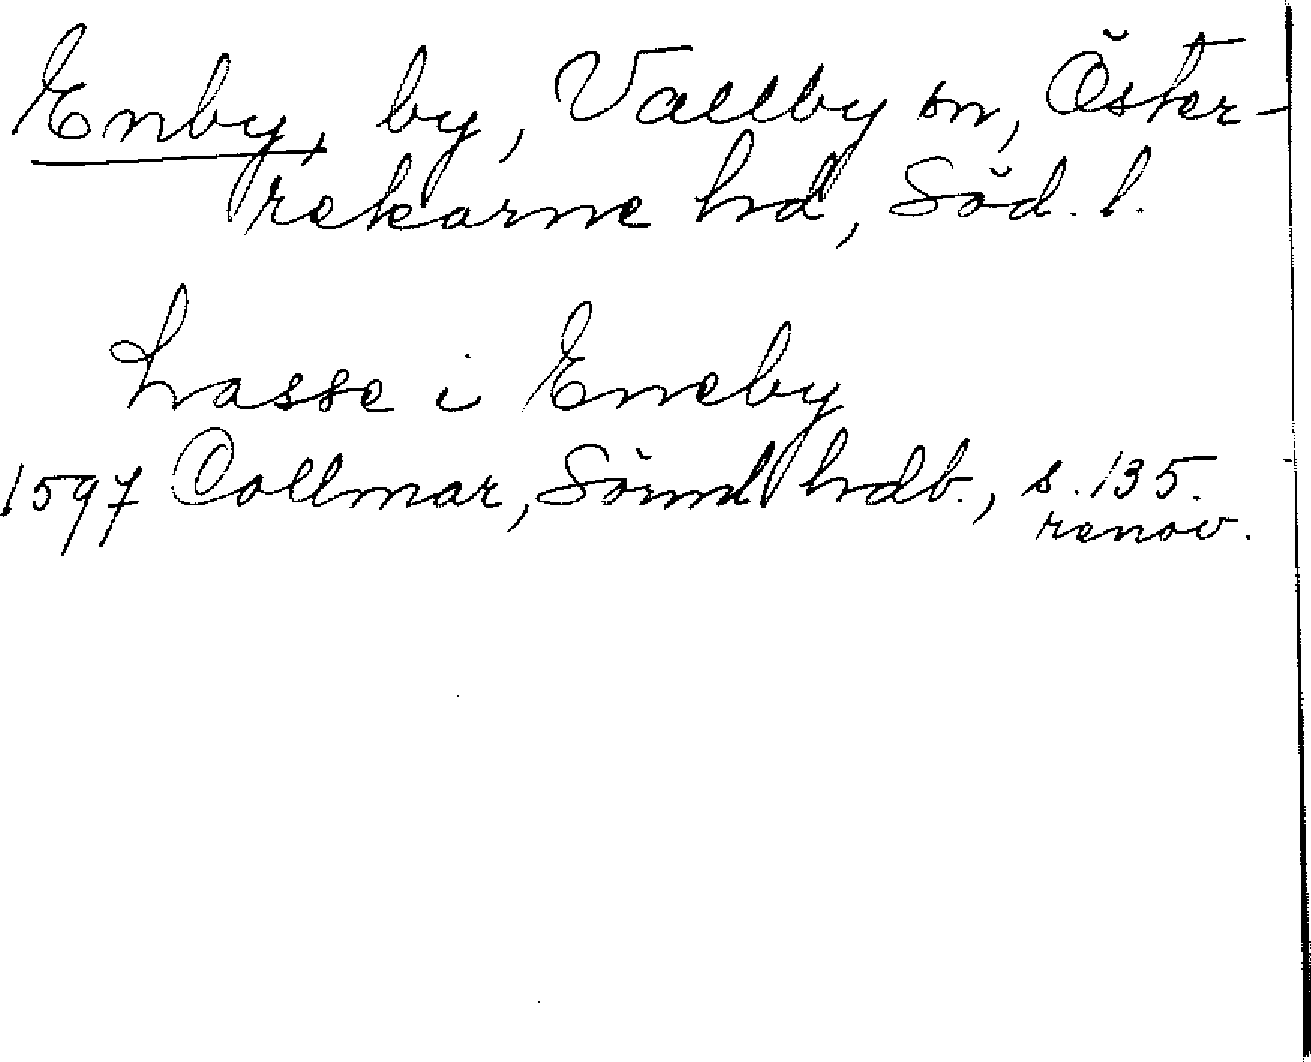 Enby, by, Vallby sn, Öster-
rekarne hd, Söd. l.
Lasse i Eneby
1597 Collmar, Sörml hdb., s. 135.
renov.